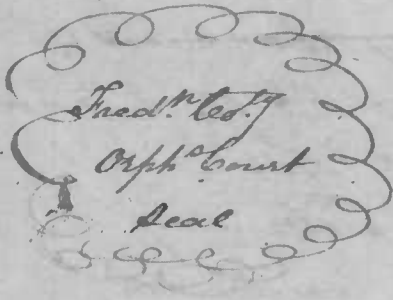 Fredk. Coty
Orphs Court
Seal